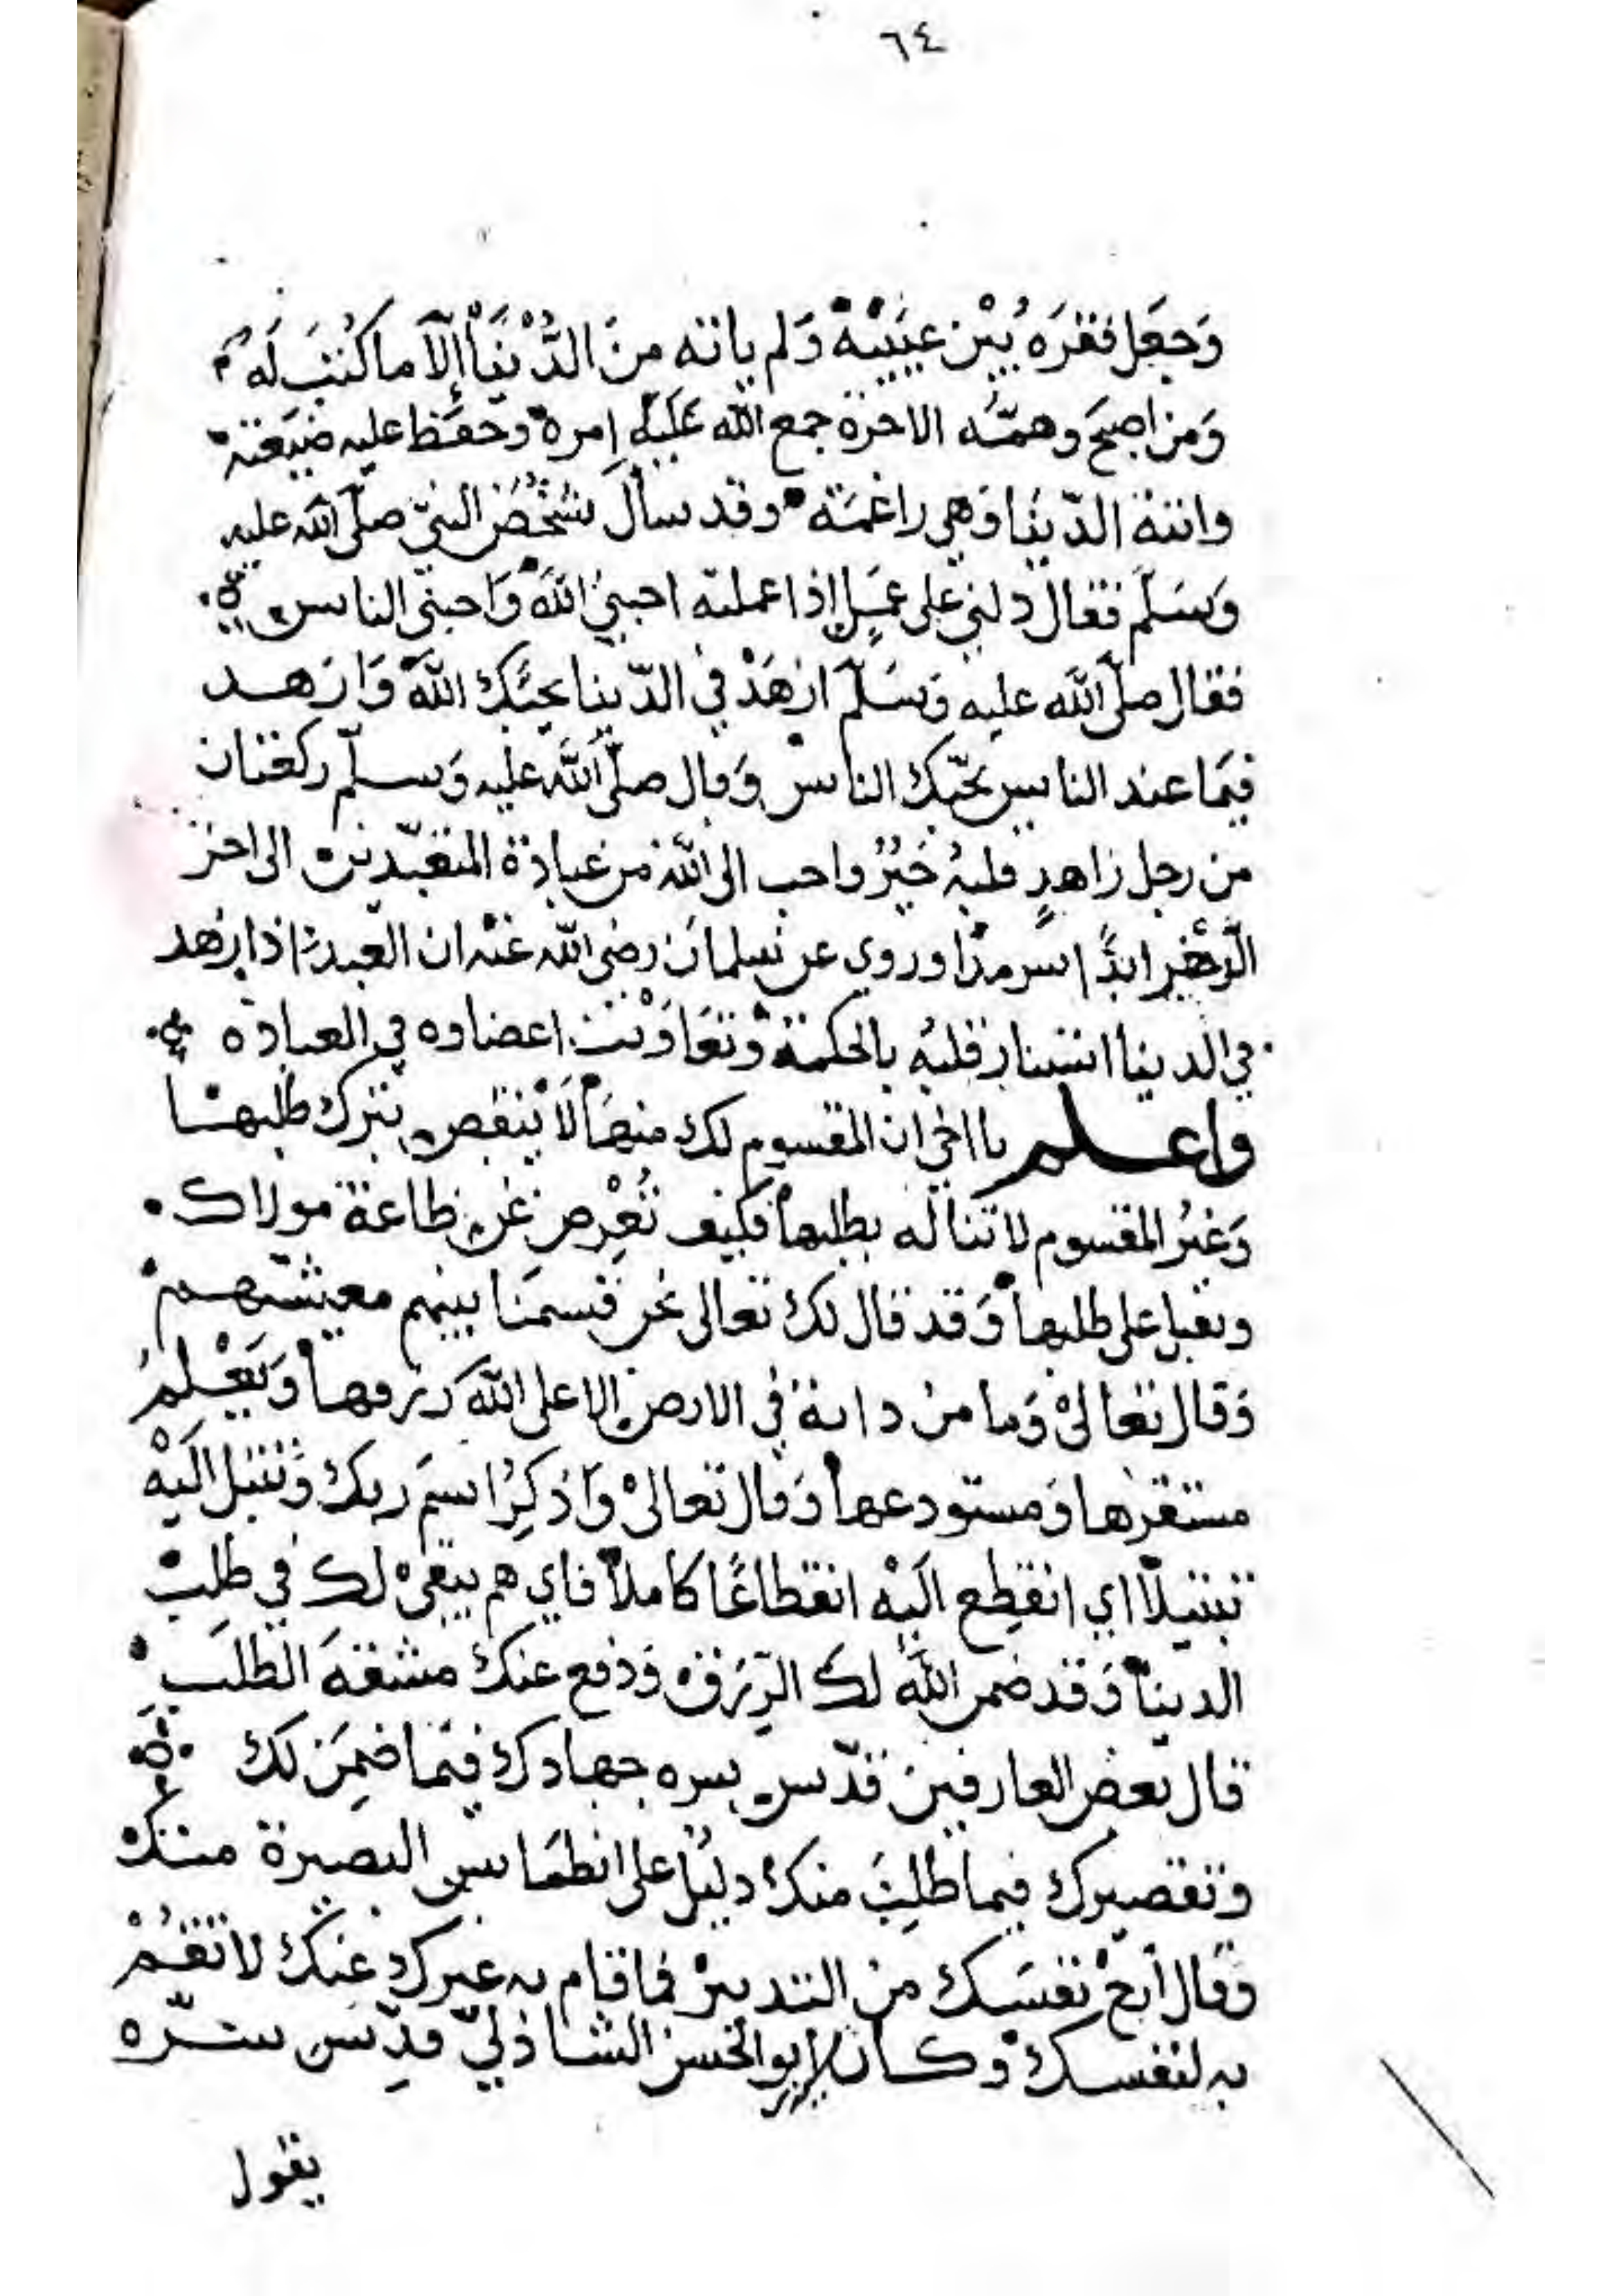 ٦٤
وَجَعَل فقرَهُ بَيْن عَينَيْهْ وَلم ياته منَ الدُّنْيَا إلّا ما كُتبَ لَهُ
وَمن اصبحَ وهمّتُه الاخرة جمع الله عَلَيْهِ امره وحفظ عليه ضيَعتهْ
واتته الدّنيَا وَهي راغمَة وقد سال شخْصٌ النبيّ صلّى الله عليه
وَسَلّم فقال دلني على عَمَلٍ إذا عملته احبنيْ اللهُ وَاحبنّي الناس
فقال صلّى الله عليه وَسَلّمَ ازهَدْ في الدّنيا يحبَّك اللهُ وَازهد
فيمَا عند الناس يحبّك الناس وَقال صلّى اللهُ عليه وَسلّم ركعتان
من رجل زاهدٍ قلبهُ خيْرٌ واحب الى الله من عبادة المتعبّدين الى اخر
الدّهْر ابدًا سرمدًا وروي عن سلمان رضي الله عَنْه ان العبد اذا زهد
في الدنيا استنار قلبُه بالحكمة وَتعَاوَنْت اعضاوه في العبادة
واعلم يا اخي ان المقسوم لك منهَا لَا يْنقص بترك طلبهَا
وَغيْرُ المقسوم لا تناله بطلبهَا فكيف تُعْرِض عَن طاعة مولاك
وتقبل على طلبهَا وَقد قال لك تعالى نحن قسمنَا بينهم معيشتهم
وَقال تعالىْ وَما من دابة في الارض إلا على الله رزقهَا وَيَعْلمُ
مستقرّها وَمستودعهَا وَقال تعالىْ وَاذكُرُ اسمَ ربك وَتبتل الَيْهْ
تبتيلًا اي انقطِع الَيْه انقطاعًا كاملًا فاي هم يبقىْ لك في طلبْ
الدنيَا وَقد ضمن اللهُ لك الرّزق وَدفع عنك مشقة الطلَبْ
قال بعض العارفين قدّس سره جهادك فيمَا ضمِنَ لك
وتقصيرك فيما طُلِبَ منك دليلٌ على انطمَاس البصيرة منك
وَقال أرحْ نفسَك من التدبيرْ فما قام به غيرك عَنك لا تقُمْ
به لنفسك وكان ابو الحسن الشاذليّ قدّس سرّه
يقول